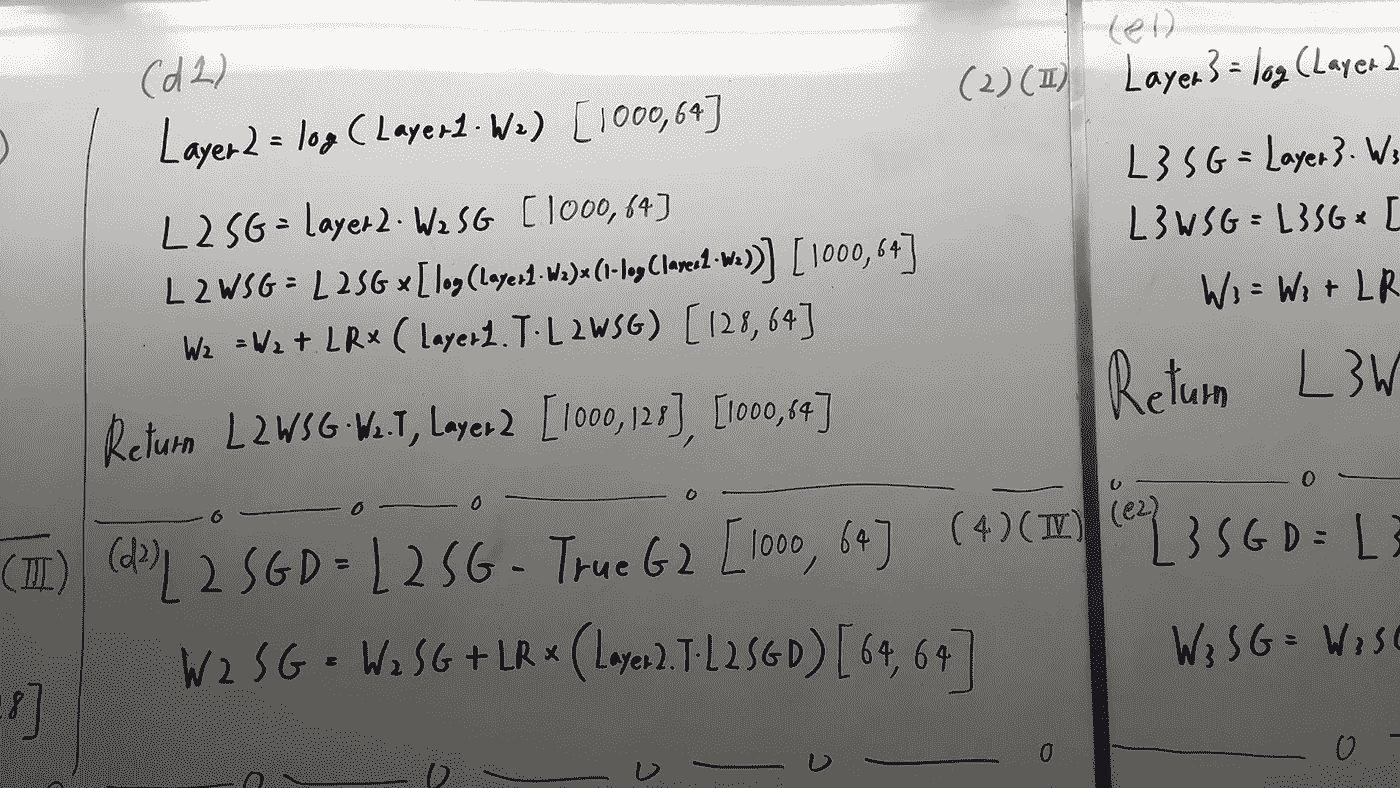 (d1)
(2)(II)
Layer2 = log(Layer1·W2) [1000,64]
L2SG = Layer2·W2SG [1000,64]
L2WSG = L2SG×[log(Layer1·W2)×(1-log(Layer1·W2))] [1000,64]
W2 = W2 + LR×(Layer1.T·L2WSG) [128,64]
Return L2WSG·W2.T, Layer2 [1000,128], [1000,64]
(4)(IV)
(d2) L2SGD = L2SG - TrueG2 [1000, 64]
W2SG = W2SG + LR×(Layer2.T·L2SGD) [64,64]
(III)
8]
(e1)
Layer3 = log(Layer2
L3SG = Layer3·W3
L3WSG = L3SG×[
W3 = W3 + LR
Return L3W
(e2) L3SGD = L3
W3SG = W3SG